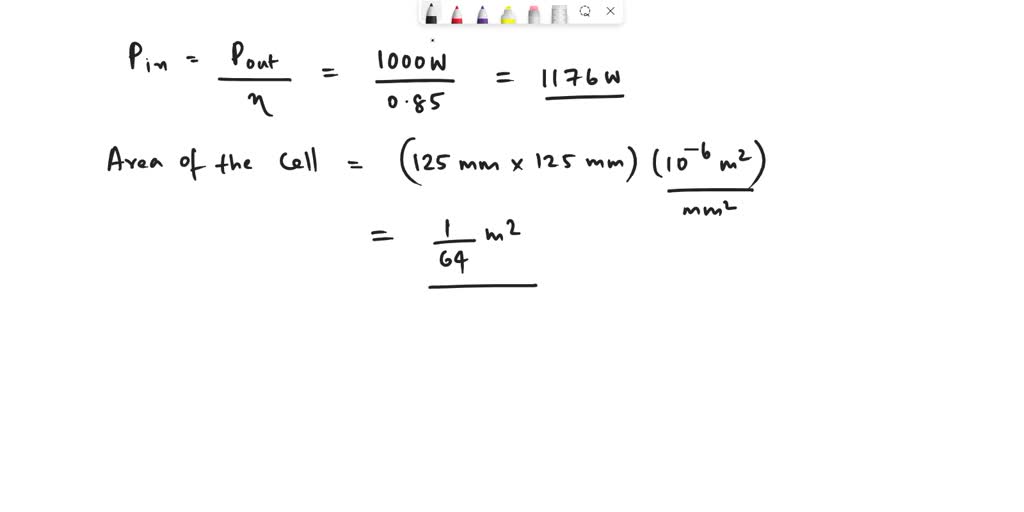 Pin = Pout / η = 1000W / 0.85 = 1176W
Area of the cell = (125 mm × 125 mm) (10⁻⁶ m² / mm²)
= 1/64 m²